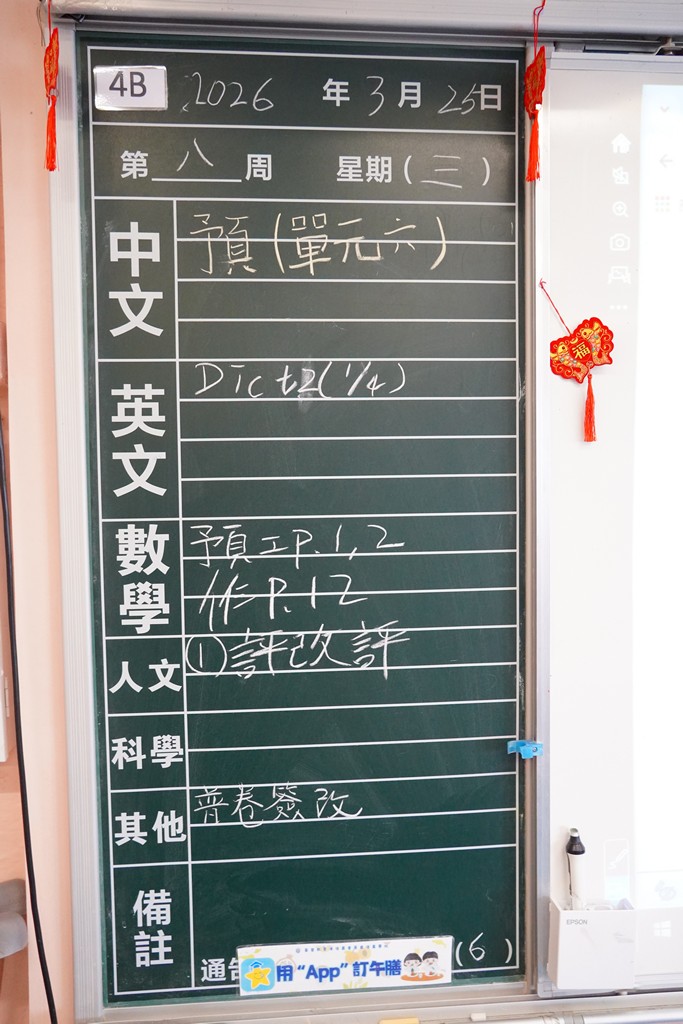 4B 2026 年 3 月 25 日
第 八 周 星期 ( 三 )
中文 預 (單元六)
英文 Dict 2 (1/4)
數學 預 工 P. 1, 2
作 P. 12
人文 ① 評改評
科學
其他 普卷簽改
備註
通告 (6)
用 “App” 訂午膳
福
EPSON